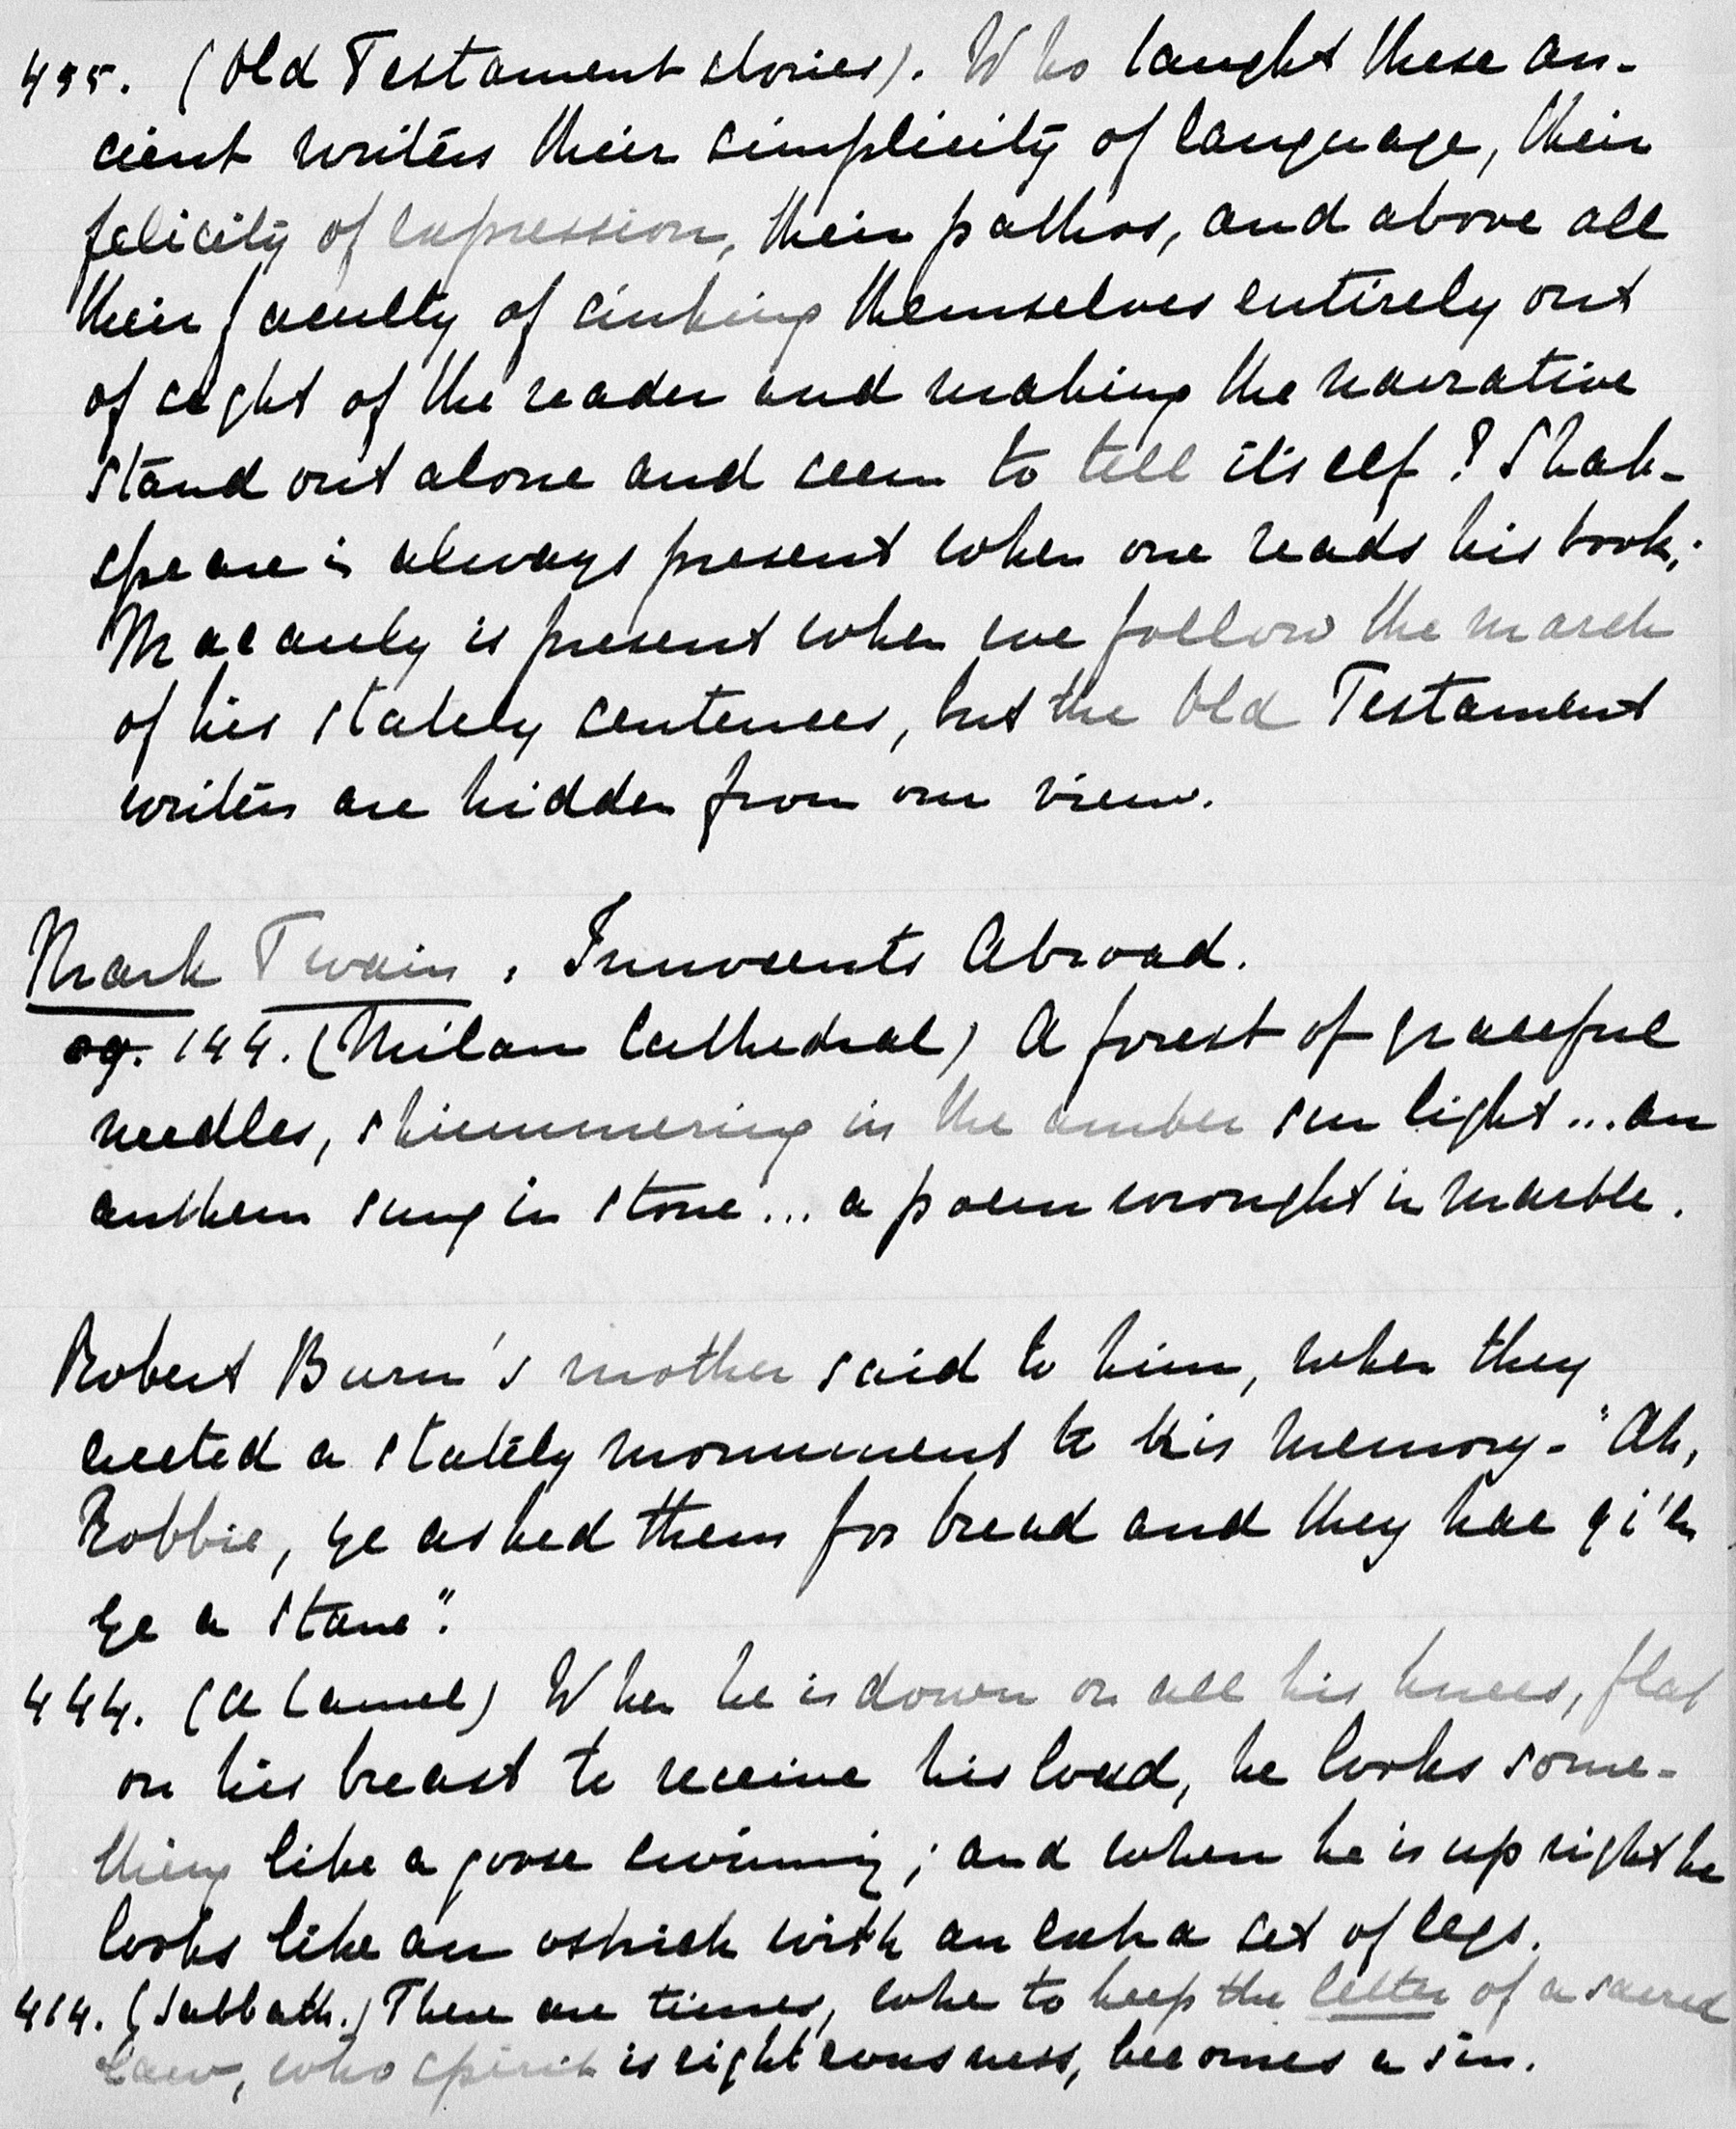 495. (Old Testament stories). Who taught these an-
cient writers their simplicity of language, their
felicity of expression, their pathos, and above all
their faculty of sinking themselves entirely out
of sight of the reader and making the narrative
stand out alone and seem to tell itself? Shak-
speare is always present when one reads his book;
Macauly is present when we follow the march
of his stately sentences, but the Old Testament
writers are hidden from our view.
Mark Twain, Innocents Abroad.
pg. 144. (Milan Cathedral) A forest of graceful
needles, shimmering in the amber sun light... an
anthem sung in stone... a poem wrought in marble.
Robert Burn's mother said to him, when they
erected a stately monument to his memory - "Ah,
Robbie, ye asked them for bread and they hae gi'en
ye a stane".
444. (A Camel) When he is down on all his knees, flat
on his breast to receive his load, he looks some-
thing like a goose swimming; and when he is upright he
looks like an ostrich with an extra set of legs.
414. (Sabbath.) There are times, when to keep the letter of a sacred
law, who spirit is righteousness, becomes a sin.